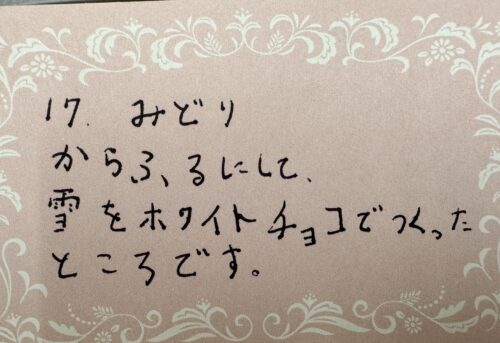 17. みどり
からふるにして、
雪をホワイトチョコでつくった
ところです。